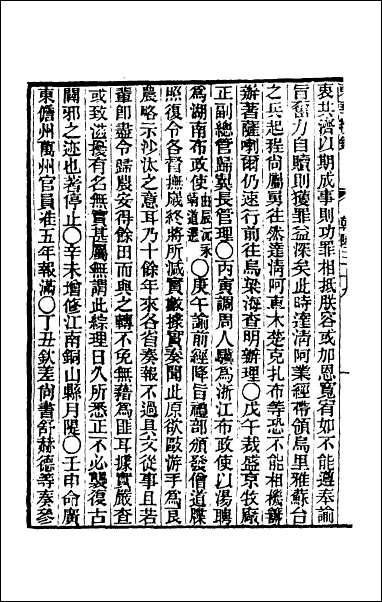 衷共濟以期成事則功罪相抵朕容或加恩寬宥如不能遵奉諭
旨奮力自贖則獲罪益深矣此時達清阿業經帶領烏里雅蘇台
之兵起程尚屬勇往然達清阿車木楚克扎布等恐不能相機籌
辦著薩喇爾仍速行前往烏梁海查明辦理○戊午裁盛京牧廠
正副總管歸翼長管理○丙寅調周人驥為浙江布政使以湯聘
為湖南布政使由辰沅永靖道遷○庚午諭前經降旨禮部頒發僧道牒
照復令各督撫歲終將所減實數據實奏聞此原欲敺游手為良
農略示沙汰之意耳乃十餘年來各省奏報不過具文從事且若
輩即盡令歸農安得餘田而與之轉不免無藉為匪耳據實嚴查
或致滋擾有名無實甚屬無謂此綜理日久所悉正不必襲復古
闢邪之迹也著停止○辛未增修江南銅山縣月隄○壬申命廣
東儋州萬州官員袿五年報滿○丁丑欽差尚書舒赫德等奏參